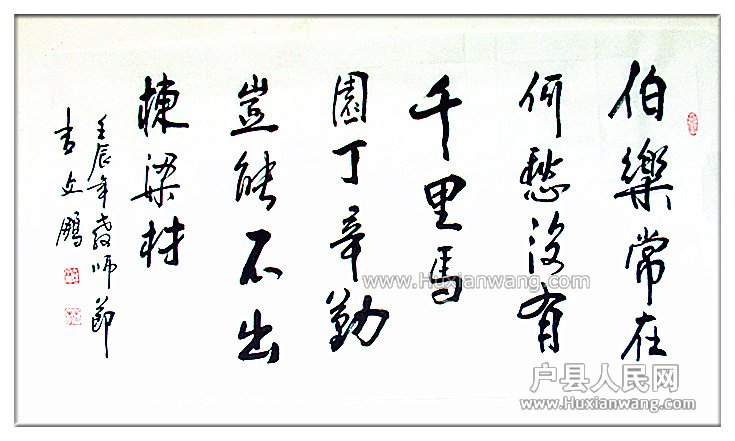 伯樂常在
何愁没有
千里馬
園丁辛勤
豈能不出
棟梁材
壬辰年教師節
www.Huxianwang.com
户县人民网
www.Huxianwang.com